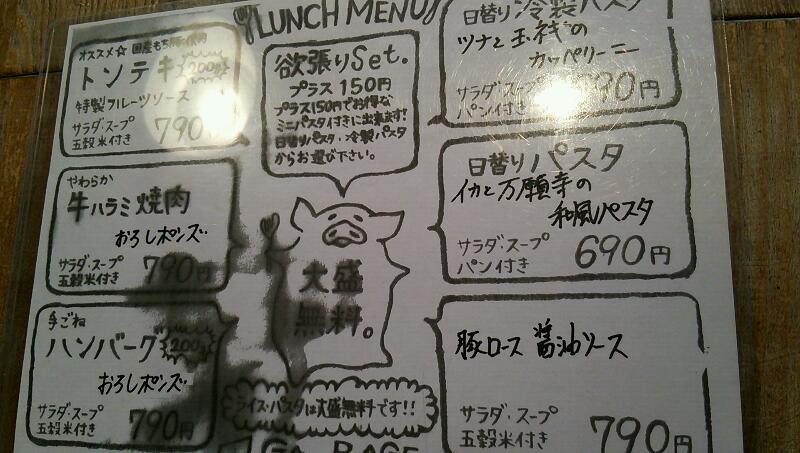 LUNCH MENU
オススメ☆ 国産もち豚使用
トンテキ 200g
特製フルーツソース
サラダ・スープ
五穀米付き 790円
やわらか
牛ハラミ焼肉
おろしポンズ
サラダ・スープ
五穀米付き 790円
手ごね
ハンバーグ 200g
おろしポンズ
サラダ・スープ
五穀米付き 790円
欲張りSet.
プラス150円
プラス150円でお得な
ミニパスタ付きに出来ます!
日替りパスタ・冷製パスタ
からお選び下さい。
大盛
無料。
ライス・パスタは大盛無料です!!
日替り 冷製パスタ
ツナと玉ねぎの
カッペリーニ
サラダ・スープ
パン付き 90円
日替りパスタ
イカと万願寺の
和風パスタ
サラダ・スープ
パン付き 690円
豚ロース 醤油ソース
サラダ・スープ
五穀米付き 790円